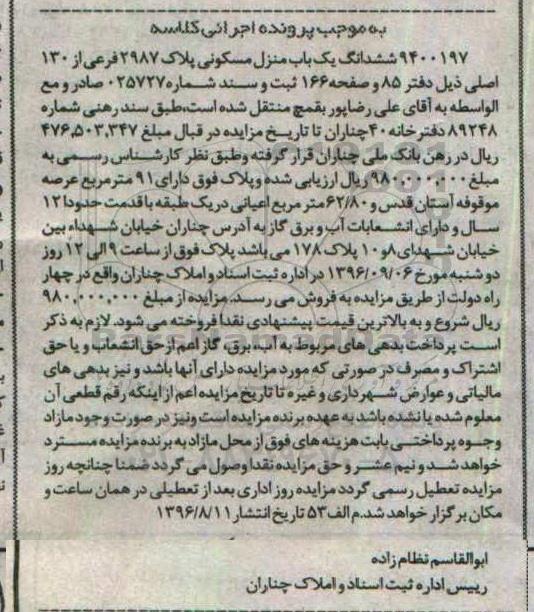 به موجب پرونده اجرائی کلاسه
۹۴۰۰۱۹۷ ششدانگ یک باب منزل مسکونی پلاک ۲۹۸۷ فرعی از ۱۳۰
اصلی ذیل دفتر ۸۵ و صفحه ۱۶۶ ثبت و سند شماره ۰۲۵۷۲۷ صادر و مع
الواسطه به آقای علی رضاپور بقمچ منتقل شده است، طبق سند رهنی شماره
۸۹۲۴۸ دفترخانه ۴۰ چناران تا تاریخ مزایده در قبال مبلغ ۴۷۶,۵۰۳,۳۴۷
ریال در رهن بانک ملی چناران قرار گرفته وطبق نظر کارشناس رسمی به
مبلغ ۹۸۰,۰۰۰,۰۰۰ ریال ارزیابی شده و پلاک فوق دارای ۹۱ مترمربع عرصه
موقوفه آستان قدس و ۶۲/۸۰ متر مربع اعیانی در یک طبقه با قدمت حدودا ۱۲
سال و دارای انشعابات آب و برق گاز به آدرس چناران خیابان شهداء بین
خیابان شهدای ۸ و ۱۰ پلاک ۱۷۸ می باشد پلاک فوق از ساعت ۹ الی ۱۲ روز
دوشنبه مورخ ۱۳۹۶/۰۹/۰۶ در اداره ثبت اسناد و املاک چناران واقع در چهار
راه دولت از طریق مزایده به فروش می رسد. مزایده از مبلغ ۹۸۰,۰۰۰,۰۰۰
ریال شروع و به بالاترین قیمت پیشنهادی نقدا فروخته می شود. لازم به ذکر
است پرداخت بدهی های مربوط به آب، برق، گاز اعم از حق انشعاب و یا حق
اشتراک و مصرف در صورتی که مورد مزایده دارای آنها باشد و نیز بدهی های
مالیاتی و عوارض شهرداری و غیره تا تاریخ مزایده اعم از اینکه رقم قطعی آن
معلوم شده یا نشده باشد به عهده برنده مزایده است ونیز در صورت وجود مازاد
وجوه پرداختی بابت هزینه های فوق از محل مازاد به برنده مزایده مسترد
خواهد شد و نیم عشر و حق مزایده نقدا وصول می گردد ضمنا چنانچه روز
مزایده تعطیل رسمی گردد مزایده روز اداری بعد از تعطیلی در همان ساعت و
مکان برگزار خواهد شد. م الف ۵۳ تاریخ انتشار ۱۳۹۶/۸/۱۱
ابوالقاسم نظام زاده
رییس اداره ثبت اسناد و املاک چناران